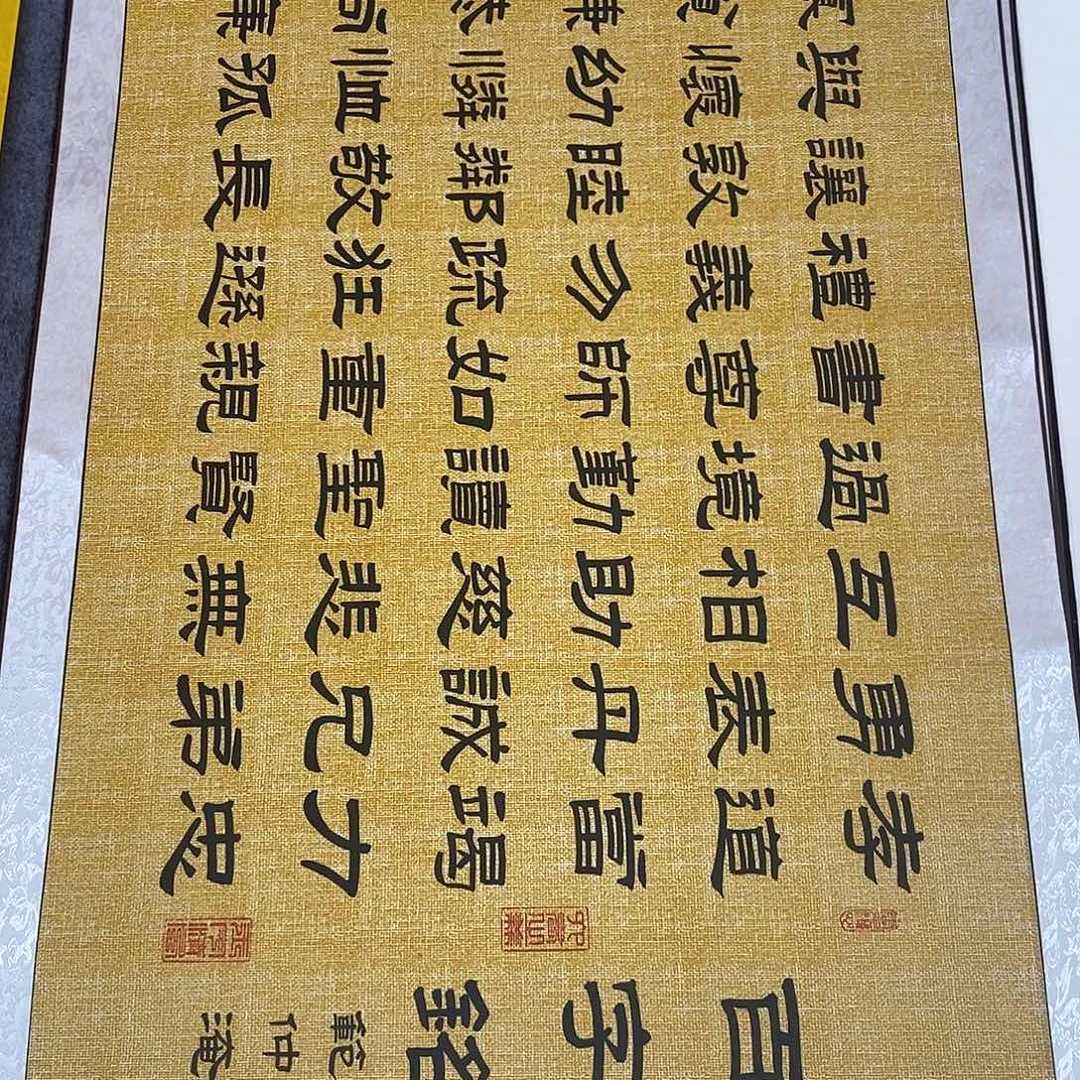 百字銘
範仲淹
孝道當竭力忠
勇表丹誠兄弟
互相助慈悲無
過境勤讀聖賢
書尊師如重親
禮義勿疏狂遜
讓敦睦鄰敬長
與懷幼憐恤孤
寡貧謙恭尚廉